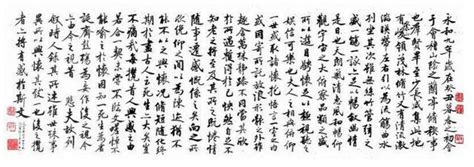 永和九年歲在癸丑暮春之初會
于會稽山陰之蘭亭脩稧事
也羣賢畢至少長咸集此地
有崇山峻領茂林脩竹又有清流激
湍暎帶左右引以為流觴曲水
列坐其次雖無絲竹管弦之盛
一觴一詠亦足以暢敘幽情
是日也天朗氣清惠風和暢仰
觀宇宙之大俯察品類之盛
所以遊目騁懷足以極視聽之
娛信可樂也夫人之相與俯仰
一世或取諸懷抱悟言一室之內
或因寄所託放浪形骸之外雖
趣舍萬殊靜躁不同當其欣
於所遇蹔得於己怏然自足不
知老之將至及其所之既惓情
隨事遷感慨係之矣向之所
欣俛仰之間以為陳迹猶不
能不以之興懷況脩短隨化終
期於盡古人云死生亦大矣豈
不痛哉每攬昔人興感之由
若合一契未嘗不臨文嗟悼不
能喻之於懷固知一死生為虛
誕齊彭殤為妄作後之視今
亦由今之視昔悲夫故列
敘時人錄其所述雖世殊事
異所以興懷其致一也後之攬
者亦將有感於斯文